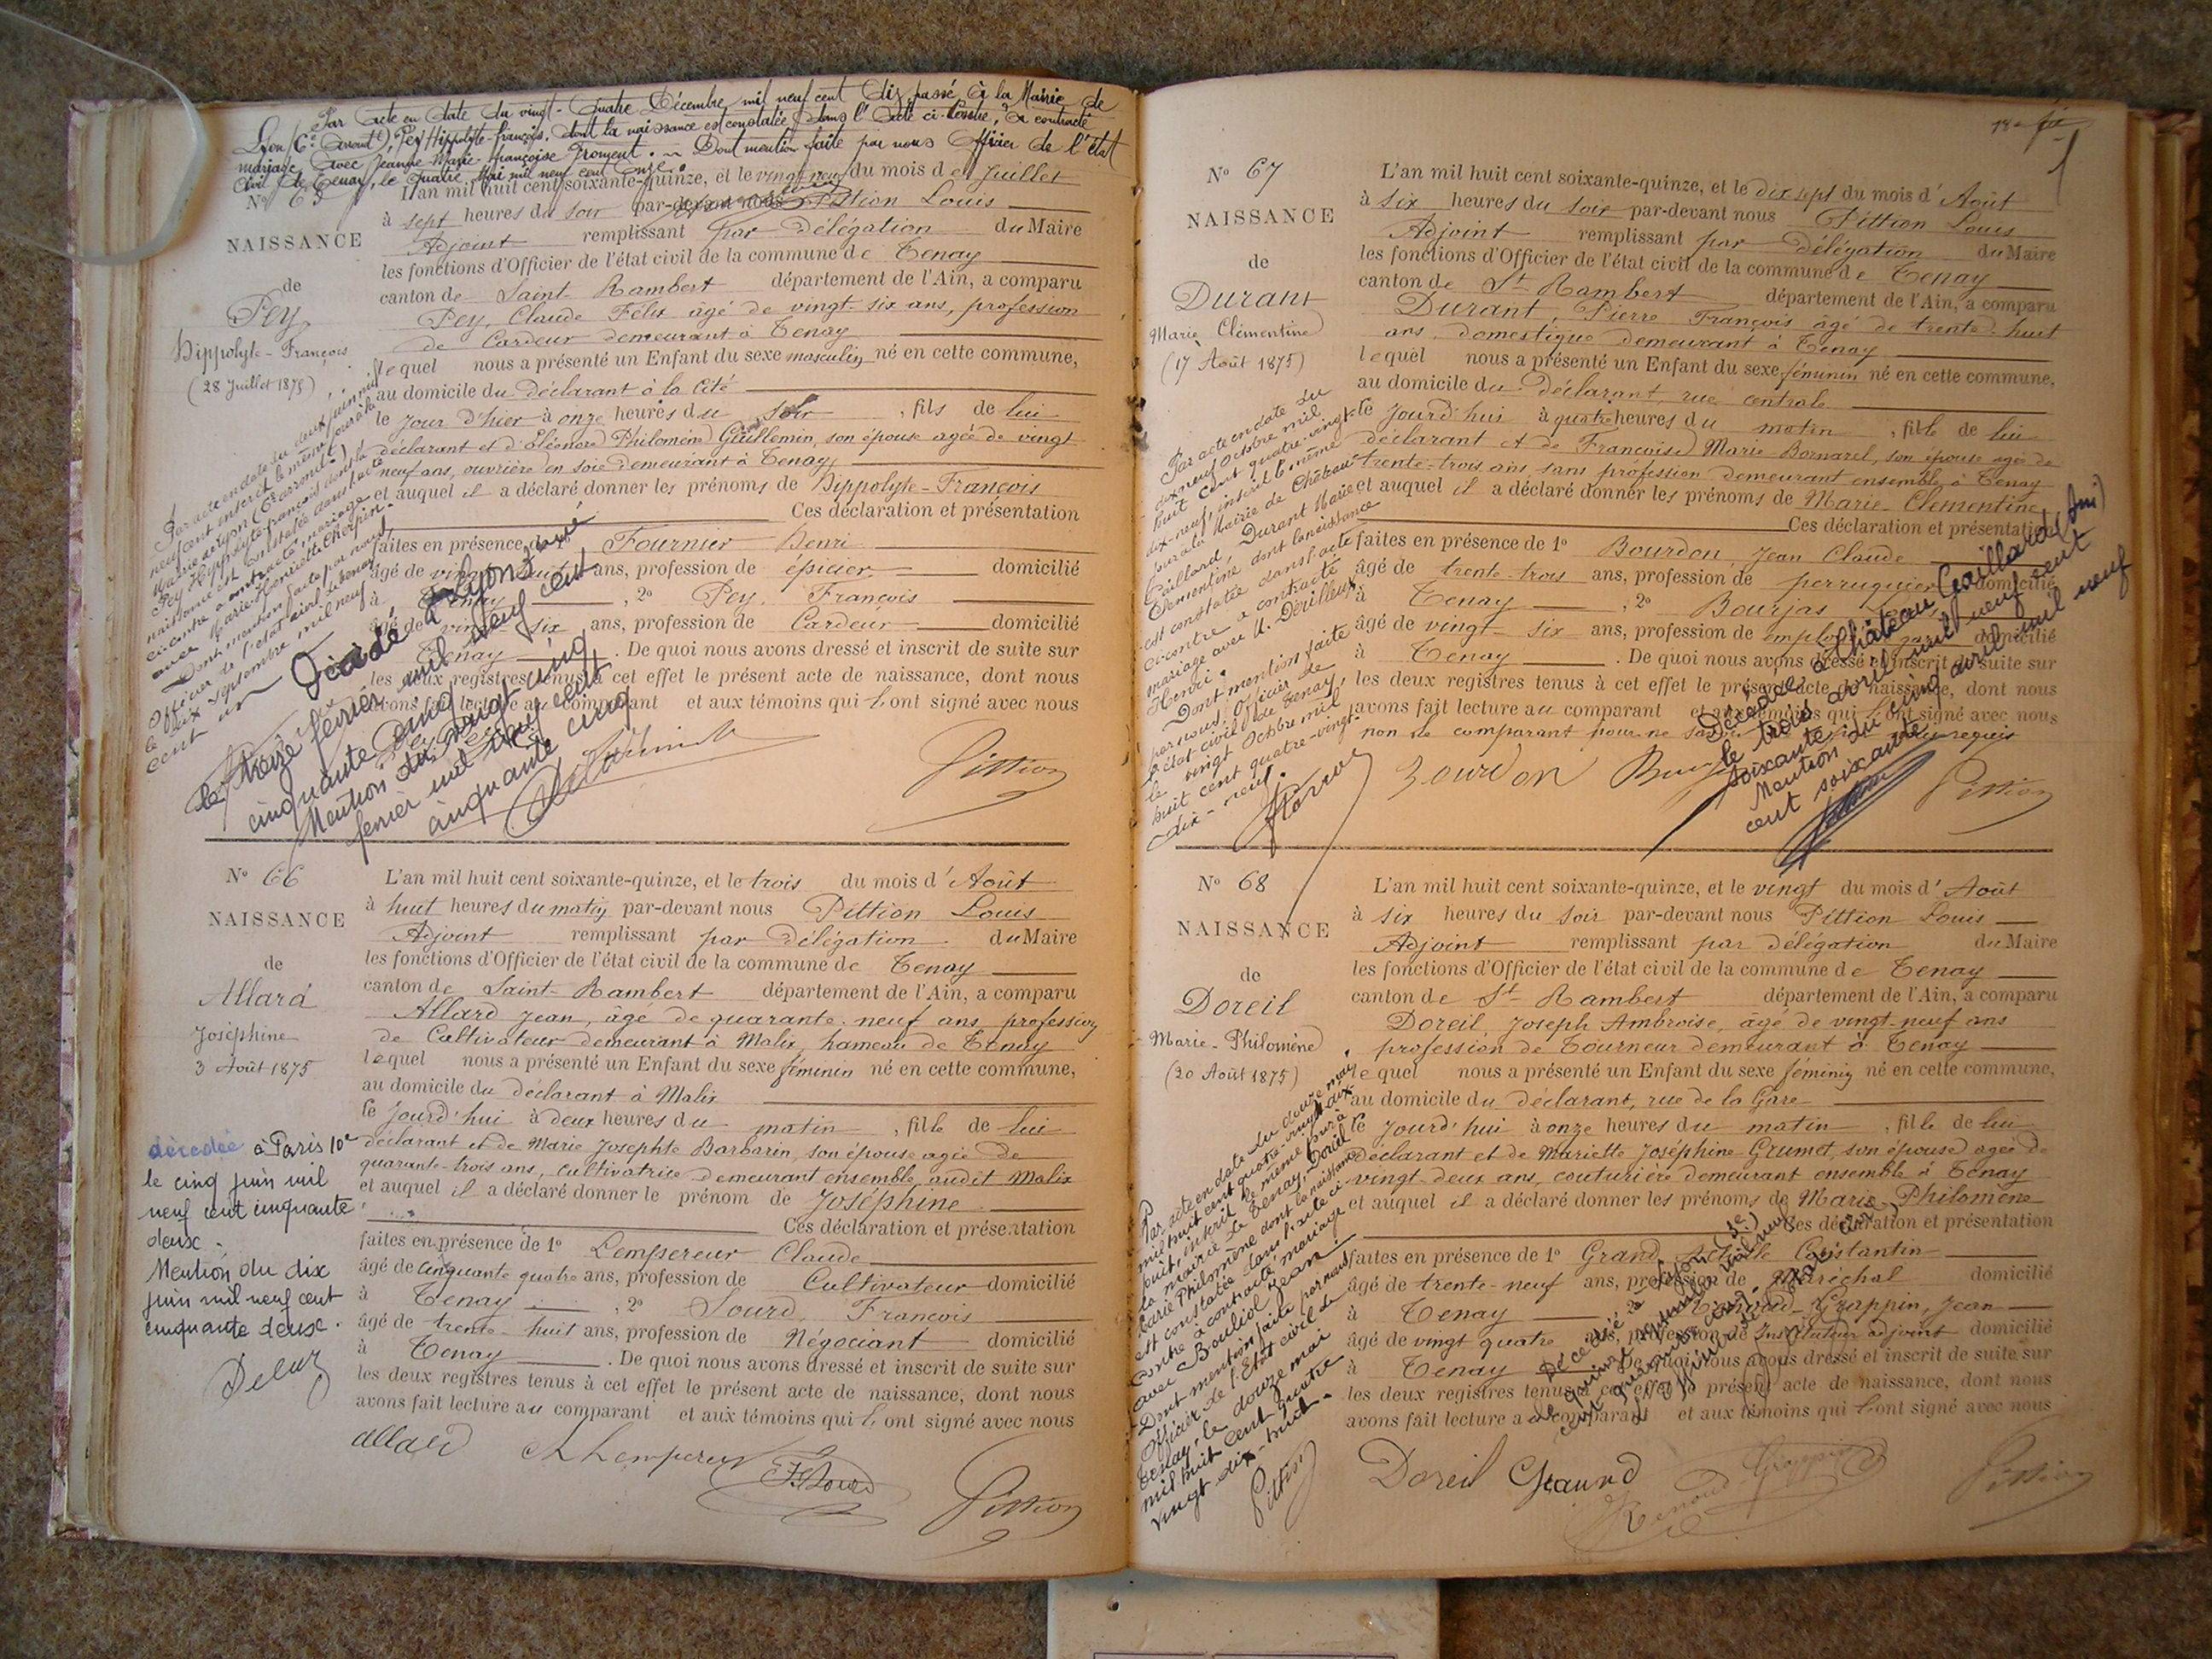 Par acte en date du vingt-quatre Décembre mil neuf cent dix, passé à la Mairie de
Lyon (6e arrondt), Pey Hippolyte-françois, dont la naissance est constatée dans l'acte ci-contre, a contracté
mariage avec Jeanne-Marie-françoise Froment. Dont mention faite par nous officier de l'état
civil de Tenay, le quatre Mai mil neuf cent onze.
No 65
NAISSANCE
de
Pey
Hippolyte-François
(28 Juillet 1875)
Par acte en date du deux juin mil
neuf cent inscrit le même jour à la
Mairie de Lyon
Pey Hippolyte françois dont la
naissance est constatée dans l'acte
ci-contre a contracté mariage
avec Marie Henriette Cherpin.
Dont mention faite par nous
officier de l'état civil de Tenay
le dix septembre mil neuf
cent un
L'an mil huit cent soixante-quinze, et le vingt neuf du mois de Juillet
à sept heures du soir par-devant nous Pittion Louis
Adjoint remplissant par délégation du Maire
les fonctions d'Officier de l'état civil de la commune de Tenay
canton de Saint-Rambert département de l'Ain, a comparu
Pey, Claude Félix âgé de vingt-six ans, profession
de Cardeur demeurant à Tenay
lequel nous a présenté un Enfant du sexe masculin né en cette commune,
au domicile du déclarant à la Cité
le jour d'hier à onze heures du soir, fils de lui
déclarant et d'Eléonore Philomène Guillemin, son épouse agée de vingt
neuf ans, ouvrière en soie demeurant à Tenay
et auquel il a déclaré donner les prénoms de Hippolyte-François
Ces déclaration et présentation
faites en présence de 1o Fournier Henri
âgé de vingt huit ans, profession de épicier domicilié
à Tenay, 2o Pey, François
âgé de vingt six ans, profession de Cardeur domicilié
à Tenay. De quoi nous avons dressé et inscrit de suite sur
les deux registres tenus à cet effet le présent acte de naissance, dont nous
avons fait lecture au comparant et aux témoins qui l'ont signé avec nous
Décédé à Lyon
le treize février mil neuf cent
cinquante cinq
Mention du vingt cinq
février mil neuf cent
cinquante cinq
Pittion
No 66
NAISSANCE
de
Allard
Joséphine
3 Août 1875
décédée à Paris 10e
le cinq juin mil
neuf cent cinquante
deux.
Mention du dix
juin mil neuf cent
cinquante deux.
L'an mil huit cent soixante-quinze, et le trois du mois d'Août
à huit heures du matin par-devant nous Pittion Louis
Adjoint remplissant par délégation du Maire
les fonctions d'Officier de l'état civil de la commune de Tenay
canton de Saint-Rambert département de l'Ain, a comparu
Allard Jean, âgé de quarante-neuf ans profession
de Cultivateur demeurant à Malix, hameau de Tenay
lequel nous a présenté un Enfant du sexe féminin né en cette commune,
au domicile du déclarant à Malix
le jourd'hui à deux heures du matin, fille de lui
déclarant et de Marie Josephte Barbarin, son épouse agée de
quarante-trois ans, Cultivatrice demeurant ensemble audit Malix
et auquel il a déclaré donner le prénom de Joséphine
Ces déclaration et présentation
faites en présence de 1o Lempereur Claude
âgé de cinquante quatre ans, profession de Cultivateur domicilié
à Tenay, 2o Sourd, François
âgé de trente-huit ans, profession de Négociant domicilié
à Tenay. De quoi nous avons dressé et inscrit de suite sur
les deux registres tenus à cet effet le présent acte de naissance, dont nous
avons fait lecture au comparant et aux témoins qui l'ont signé avec nous
allard Lempereur Sourd Pittion
No 67
NAISSANCE
de
Durant
Marie Clémentine
(17 Août 1875)
Par acte en date du
dix neuf Octobre mil
huit cent quatre-vingt-
dix-neuf, inscrit le même
jour à la Mairie de Château-
Gaillard, Durant Marie
Clémentine dont la naissance
est constatée dans l'acte
ci-contre a contracté
mariage avec
Henri.
Dont mention faite
par nous, Officier de
l'état civil de Tenay,
le vingt Octobre mil
huit cent quatre-vingt-
dix-neuf.
L'an mil huit cent soixante-quinze, et le dix sept du mois d'Août
à six heures du soir par-devant nous Pittion Louis
Adjoint remplissant par délégation du Maire
les fonctions d'Officier de l'état civil de la commune de Tenay
canton de St-Rambert département de l'Ain, a comparu
Durant, Pierre François âgé de trente-huit
ans domestique demeurant à Tenay
lequel nous a présenté un Enfant du sexe féminin né en cette commune,
au domicile du déclarant, rue centrale
le jourd'hui à quatre heures du matin, fille de lui
déclarant et de Françoise Marie Bornarel, son épouse agée de
trente-trois ans sans profession demeurant ensemble à Tenay
et auquel il a déclaré donner les prénoms de Marie-Clémentine
Ces déclaration et présentation
faites en présence de 1o Bourdon, Jean Claude
âgé de trente-trois ans, profession de perruquier domicilié
à Tenay, 2o Bourjas
âgé de vingt-six ans, profession de domicilié
à Tenay. De quoi nous avons dressé et inscrit de suite sur
les deux registres tenus à cet effet le présent acte de naissance, dont nous
avons fait lecture au comparant et aux témoins qui l'ont signé avec nous
non le comparant pour ne requis
Décédée à Château Gaillard (Ain)
le trois avril mil neuf cent
soixante
Mention du cinq avril mil neuf
cent soixante
Bourdon Pittion
No 68
NAISSANCE
de
Doreil
Marie-Philomène
(20 Août 1875)
Par acte en date du douze mai
mil huit cent quatre-vingt-dix-
huit, inscrit le même jour à
la mairie de Tenay, Doreil
Marie Philomène dont la naissance
est constatée dans l'acte ci-
contre a contracté mariage
avec Bouliol Jean
Dont mention faite par nous
Officier de l'Etat civil de
Tenay, le douze mai
mil huit cent quatre
vingt dix-huit.
Pittion
L'an mil huit cent soixante-quinze, et le vingt du mois d'Août
à six heures du soir par-devant nous Pittion Louis
Adjoint remplissant par délégation du Maire
les fonctions d'Officier de l'état civil de la commune de Tenay
canton de St-Rambert département de l'Ain, a comparu
Doreil, Joseph Ambroise, âgé de vingt-neuf ans
profession de Tourneur demeurant à Tenay
lequel nous a présenté un Enfant du sexe féminin né en cette commune,
au domicile du déclarant, rue de la Gare
le jourd'hui à onze heures du matin, fille de lui
déclarant et de Mariette Joséphine Grumet, son épouse agée de
vingt-deux ans, couturière demeurant ensemble à Tenay
et auquel il a déclaré donner les prénoms de Marie-Philomène
Ces déclaration et présentation
faites en présence de 1o Grand, Achille Constantin
âgé de trente-neuf ans, profession de Maréchal domicilié
à Tenay Renoud-Grappin, Jean
âgé de vingt quatre ans, profession de Instituteur adjoint domicilié
à Tenay De quoi nous avons dressé et inscrit de suite sur
les deux registres tenus à cet effet le présent acte de naissance, dont nous
avons fait lecture au comparant et aux témoins qui l'ont signé avec nous
Décédée à
le quinze septembre mil neuf
cent quarante cinq.
Doreil Grand Renoud Grappin Pittion